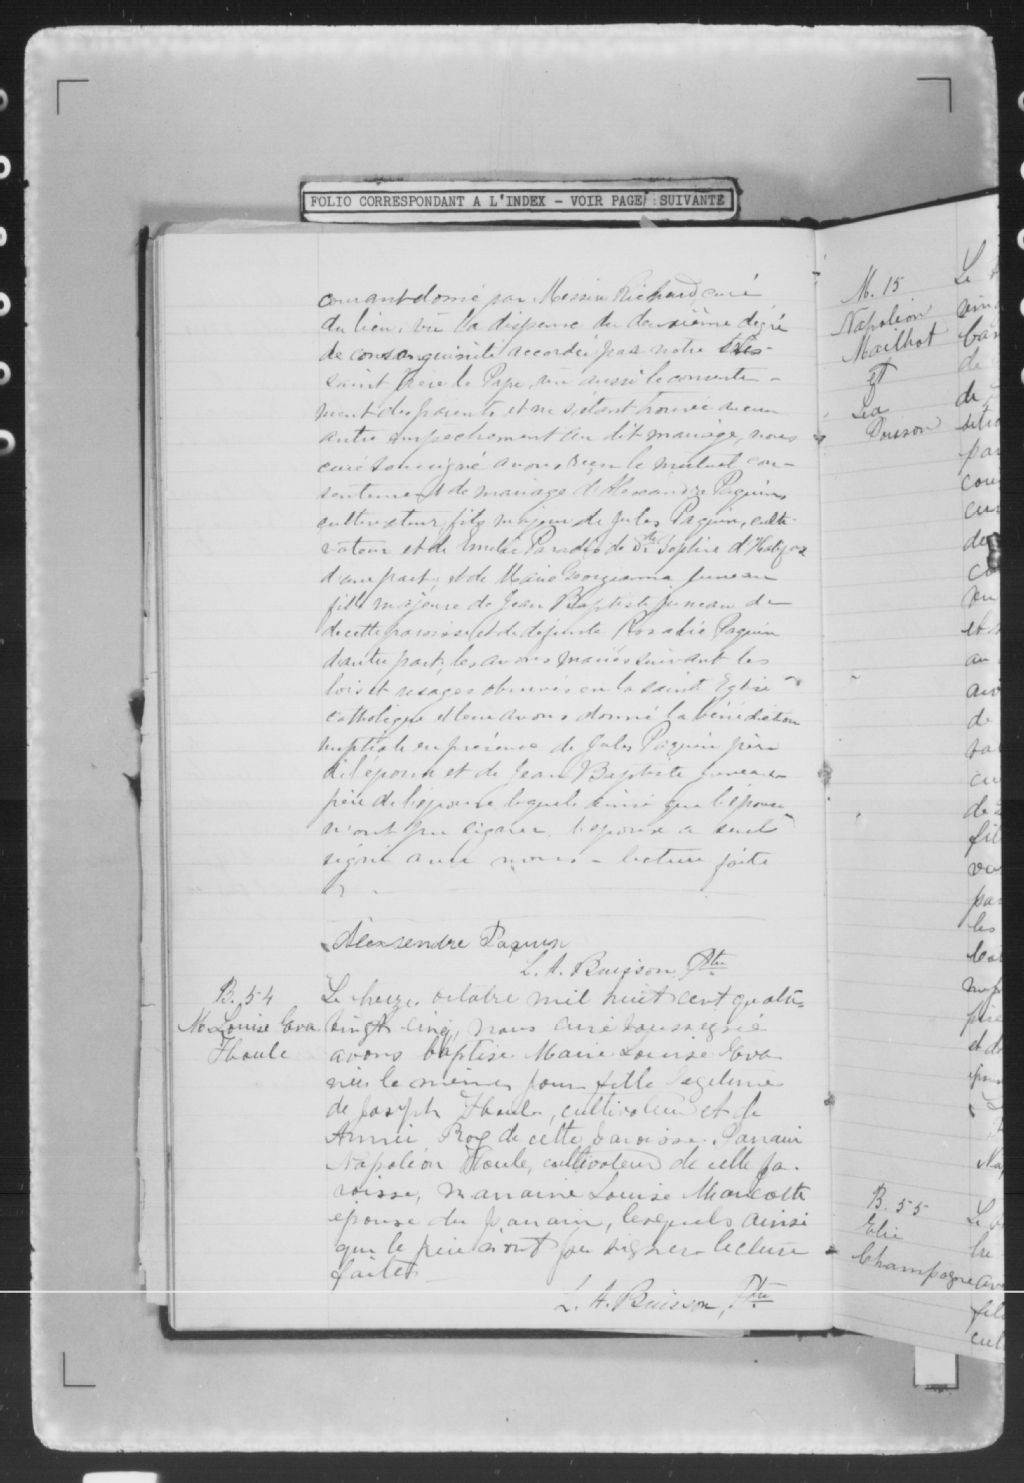 FOLIO CORRESPONDANT A L'INDEX - VOIR PAGE SUIVANTE
courant donné par Messire Richard curé
du lieu, vu la dispense du deuxième degré
de consanguinité accordée par notre très-
saint Père le Pape, vu aussi le consente-
ment des parents et ne s'étant trouvé aucun
autre empechement au dit mariage, nous
curé soussigné avons reçu le mutuel con-
sentement de mariage d'Alexandre Paquin,
cultivateur, fils majeur de Jules Paquin, culti-
vateur et de Emelie Paradis de Ste Sophie d'Halifax
d'une part; et de Marie Georgianna Juneau
fille majeure de Jean Baptiste Juneau de
de cette paroisse et de defunte Rosalie Paquin
d'autre part; les avons mariés suivant les
lois et usages observés en la sainte Eglise
catholique et leur avons donné la bénédiction
nuptiale en présence de Jules Paquin père
de l'époux et de Jean Baptiste Juneau
père de l'épouse lequels ainsi que l'épouse
n'ont pu signer, l'époux a seul
signé avec nous - lecture faite
Alexsendre Paquin
L. A. Buisson Ptre
B. 54
M. Louise Eva
Houle
Le treize octobre mil huit cent quatre-
vingt cinq, nous curé soussigné
avons baptisé Marie Louise Eva
née le même jour fille légitime
de Joseph Houle, cultivateur et de
Annie Roy de cette paroisse. Parrain
Napoléon Houle, cultivateur de cette pa-
roisse, marraine Louise Marcotte
épouse du parrain, lesquels ainsi
que le père n'ont pu signer lecture
faite
L. A. Buisson, Ptre
M. 15
Napoléon
Mailhot
et
Lea
Poisson
B. 55
Elie
Champagne